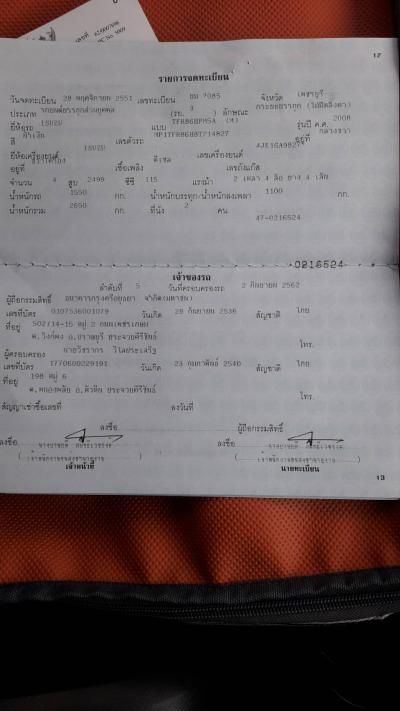 12
รายการจดทะเบียน
วันจดทะเบียน 28 พฤศจิกายน 2551 เลขทะเบียน บม 7085 จังหวัด เพชรบุรี
ประเภท รถยนต์บรรทุกส่วนบุคคล (รย. 3 ) ลักษณะ กระบะบรรทุก (ไม่มีหลังคา)
ยี่ห้อรถ ISUZU แบบ TFR86HPM5A (M) รุ่นปี ค.ศ. 2008
สี น้ำเงิน เลขตัวรถ MP1TFR86H8T714827 อยู่ที่ กลางขวา
ยี่ห้อเครื่องยนต์ ISUZU เลขเครื่องยนต์
อยู่ที่ เชื้อเพลิง ดีเซล เลขถังแก๊ส
จำนวน 4 สูบ 2499 ซีซี 115 แรงม้า 2 เพลา 4 ล้อ ยาง 4 เส้น
น้ำหนักรถ 1550 กก. น้ำหนักบรรทุก/น้ำหนักลงเพลา 1100 กก.
น้ำหนักรวม 2650 กก. ที่นั่ง 2 คน
47-0216524
0216524
เจ้าของรถ
ลำดับที่ 5 วันที่ครอบครองรถ 2 กันยายน 2562
ผู้ถือกรรมสิทธิ์ ธนาคารกรุงศรีอยุธยา จำกัด(มหาชน)
เลขที่บัตร 0107536001079 วันเกิด 28 กันยายน 2536 สัญชาติ ไทย
ที่อยู่ 502/14-15 หมู่ 2 ถนนเพชรเกษม
ต.วังก์พง อ.ปราณบุรี ประจวบคีรีขันธ์ โทร.
ผู้ครอบครอง นายวัชรากร วิไลประเสริฐ
เลขที่บัตร 1770600229191 วันเกิด 23 กุมภาพันธ์ 2540 สัญชาติ ไทย
ที่อยู่ 198 หมู่ 6
ต.หนองพลับ อ.หัวหิน ประจวบคีรีขันธ์ โทร.
สัญญาเช่าซื้อเลขที่ ลงวันที่
ลงชื่อ ผู้ถือกรรมสิทธิ์
ลงชื่อ ลงชื่อ
เจ้าหน้าที่ นายทะเบียน
13